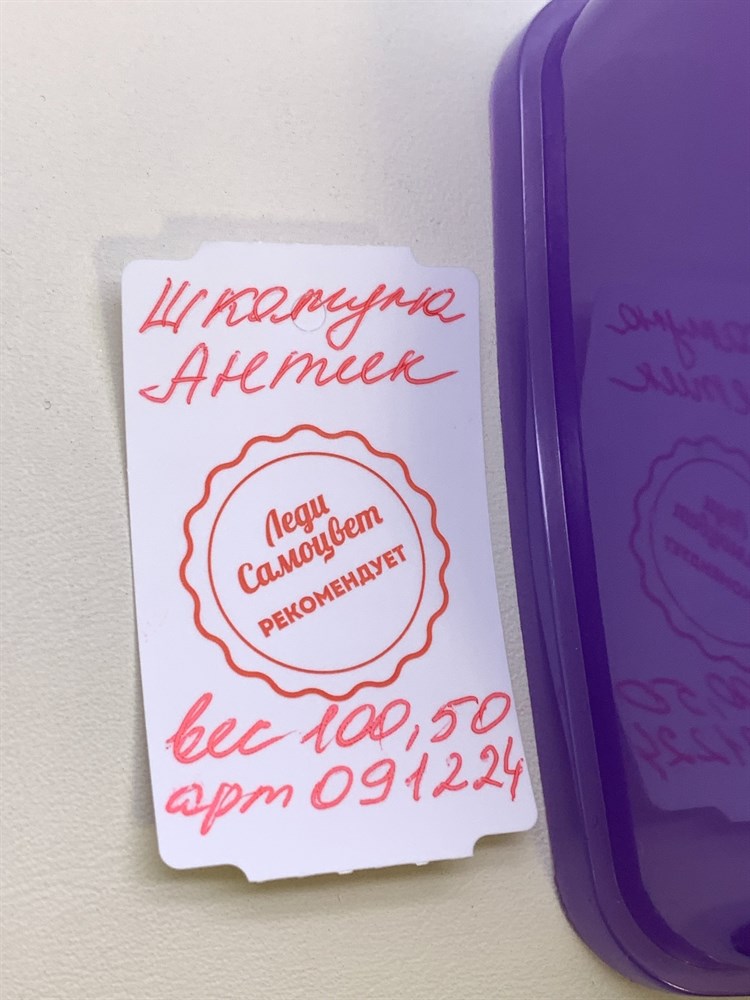 Шкатулка
Антик
Леди
Самоцвет
РЕКОМЕНДУЕТ
вес 100,50
арт 091224